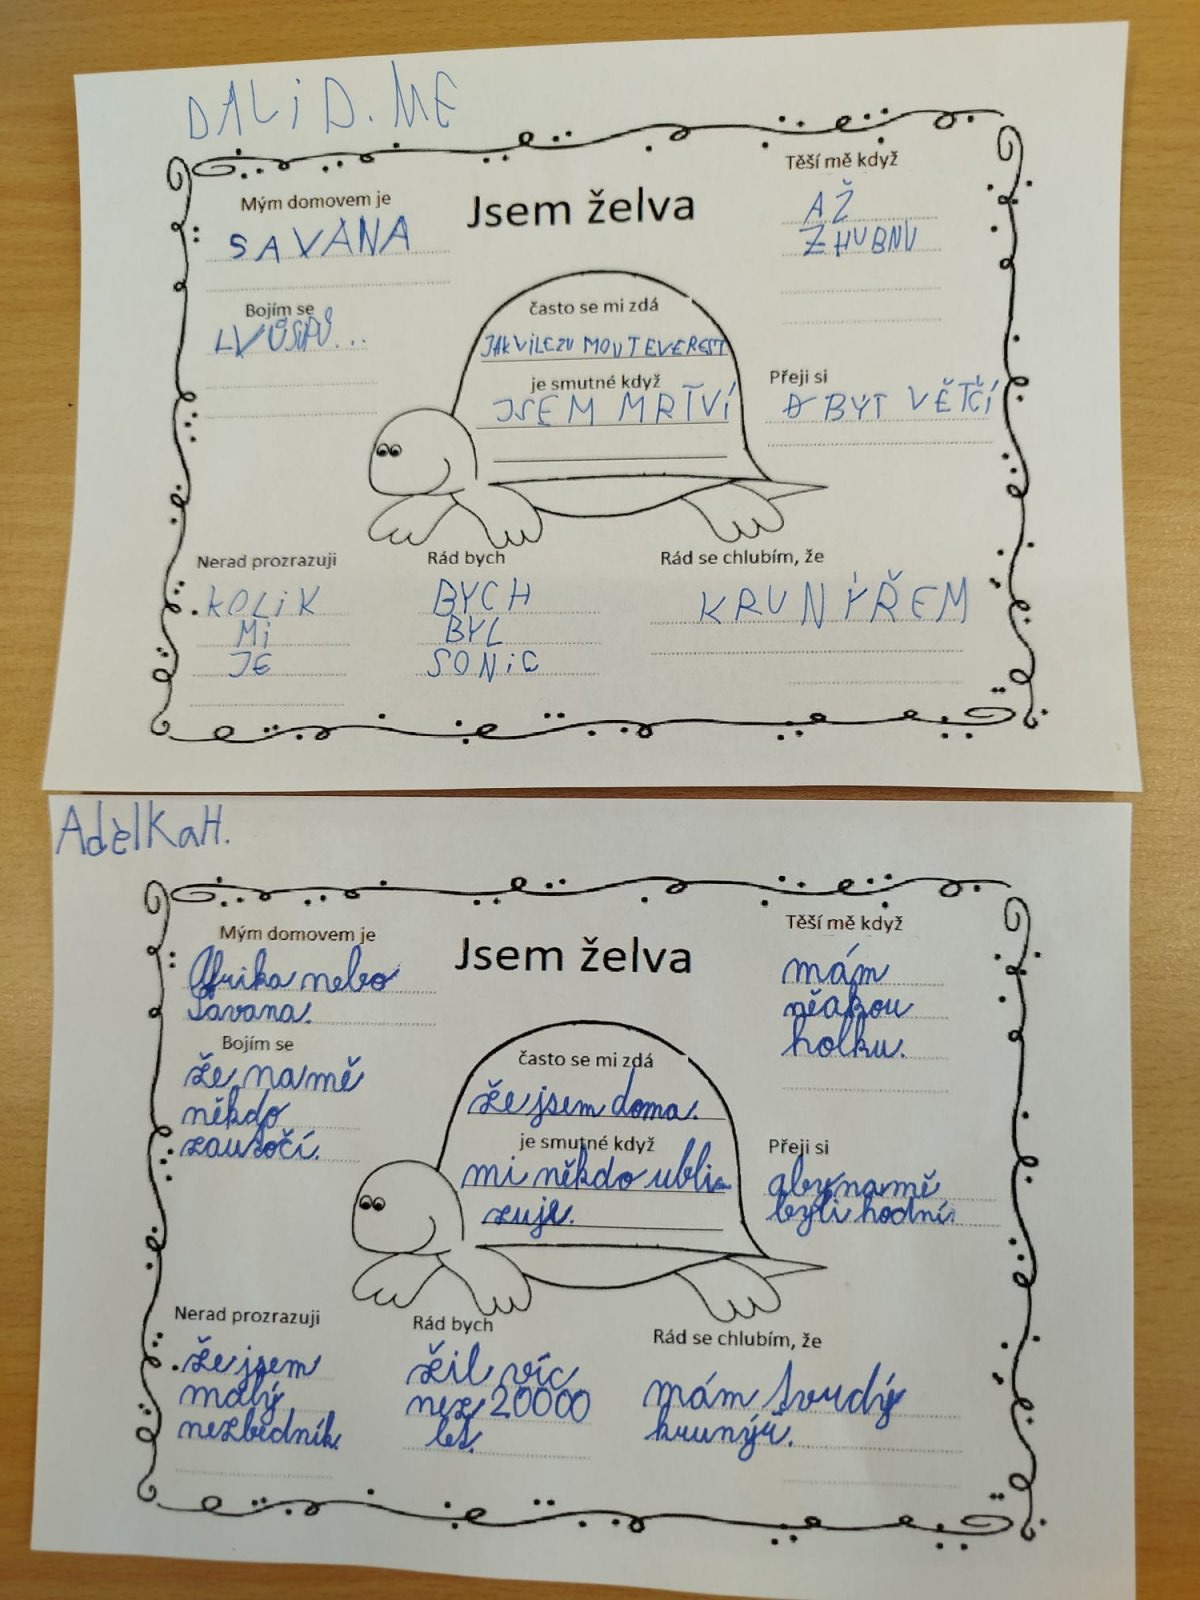 DALiD. ME
Mým domovem je
SAVANA
Jsem želva
Těší mě když
AŽ
ZHUBNU
Bojím se
často se mi zdá
JAK VILEZU MOUT EVEREST
je smutné když
JSEM MRTVÍ
Přeji si
BÝT VĚTČÍ
Nerad prozrazuji
KOLiK
Mi
JE
Rád bych
BYCH
BYL
SONiC
Rád se chlubím, že
KRUNÝŘEM
Adèlka H.
Mým domovem je
Afrika nebo
Savana.
Jsem želva
Těší mě když
mám
něakou
holku.
Bojím se
že na mě
někdo
zautočí.
často se mi zdá
že jsem doma.
je smutné když
mi někdo ubli-
zuje.
Přeji si
aby na mě
byli hodní.
Nerad prozrazuji
že jsem
malý
nezbedník.
Rád bych
žil víc
nez 20000
let.
Rád se chlubím, že
mám tvrdý
krunýř.